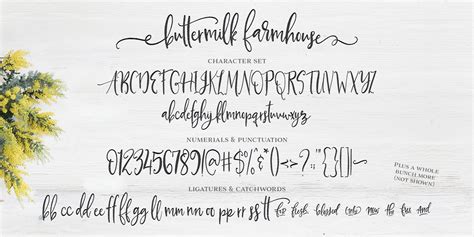 buttermilk farmhouse
CHARACTER SET
ABCDEFGHIJKLMNOPQRSTUVWXYZ
abcdefghijklmnopqrstuvwxyz
NUMERIALS & PUNCTUATION
PLUS A WHOLE
BUNCH MORE
(NOT SHOWN)
LIGATURES & CATCHWORDS
bb cc dd ee ff gg ll mm nn oo pp rr ss tt for fresh blessed into now the and